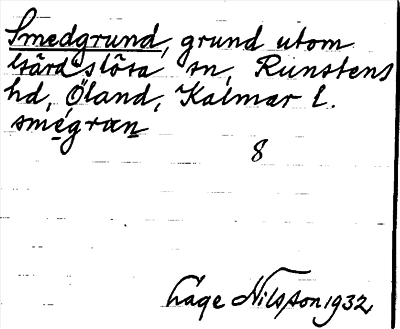 Smedgrund, grund utom
Gärdslösa sn, Runstens
hd, Öland, Kalmar l.
smegran
8
Låge Nilsson 1932